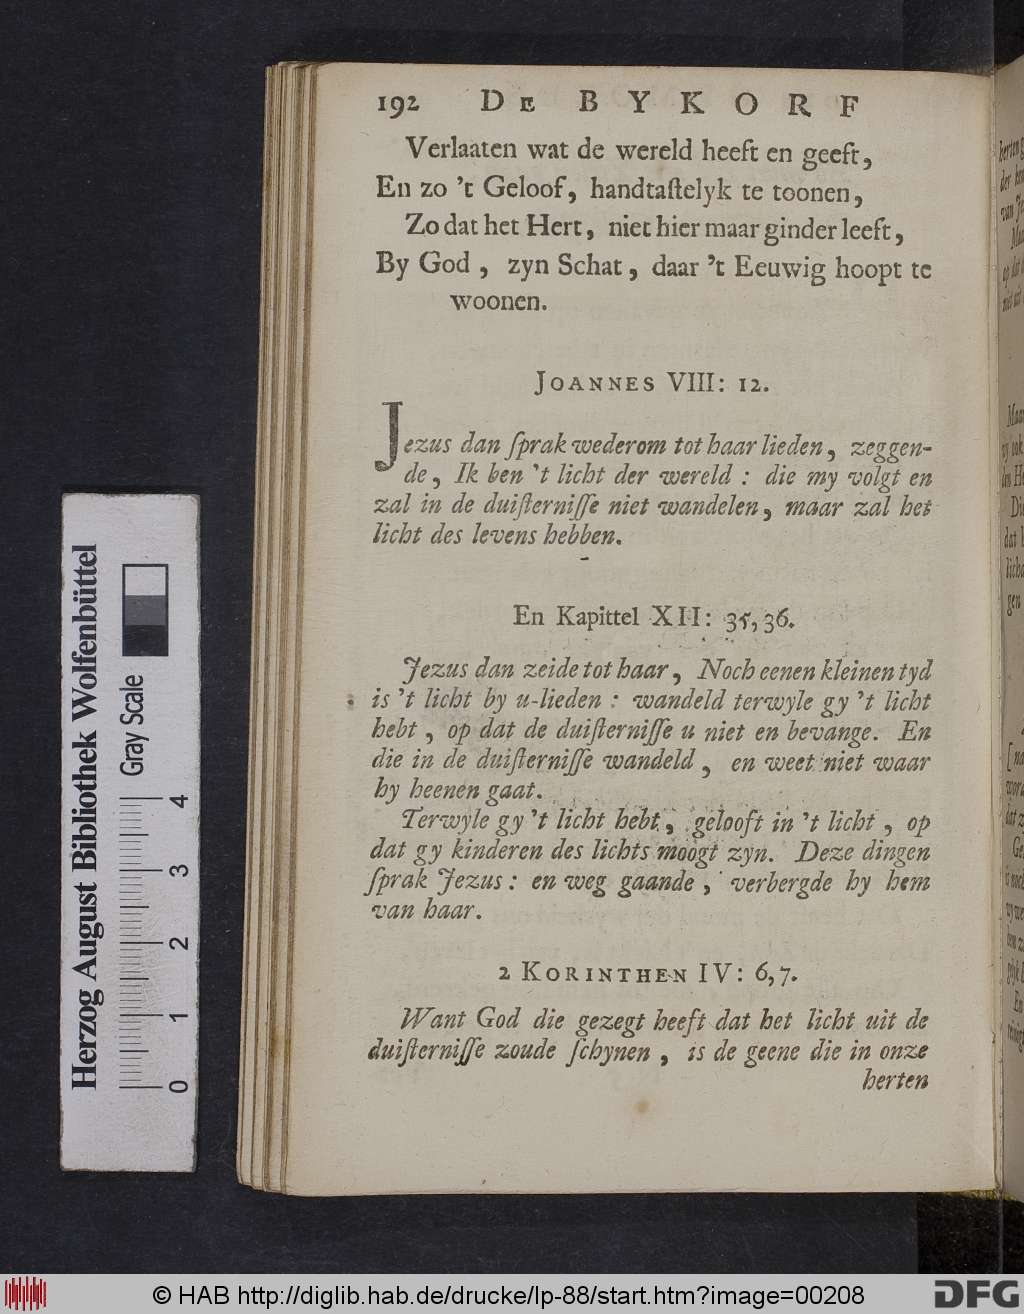 192 DE BYKORF
Verlaaten wat de wereld heeft en geeft,
En zo 't Geloof, handtaſtelyk te toonen,
Zo dat het Hert, niet hier maar ginder leeft,
By God, zyn Schat, daar 't Eeuwig hoopt te
woonen.
JOANNES VIII: 12.
Jezus dan ſprak wederom tot haar lieden, zeggen-
de, Ik ben 't licht der wereld: die my volgt en
zal in de duiſterniſſe niet wandelen, maar zal het
licht des levens hebben.
En Kapittel XII: 35,36.
Jezus dan zeide tot haar, Noch eenen kleinen tyd
is 't licht by u-lieden: wandeld terwyle gy 't licht
hebt, op dat de duiſterniſſe u niet en bevange. En
die in de duiſterniſſe wandeld, en weet niet waar
hy heenen gaat.
Terwyle gy 't licht hebt, gelooft in 't licht, op
dat gy kinderen des lichts moogt zyn. Deze dingen
ſprak Jezus: en weg gaande, verbergde hy hem
van haar.
2 KORINTHEN IV: 6,7.
Want God die gezegt heeft dat het licht uit de
duiſterniſſe zoude ſchynen, is de geene die in onze
herten
Herzog August Bibliothek Wolfenbüttel
Gray Scale
0 1 2 3 4
© HAB http://diglib.hab.de/drucke/lp-88/start.htm?image=00208
DFG